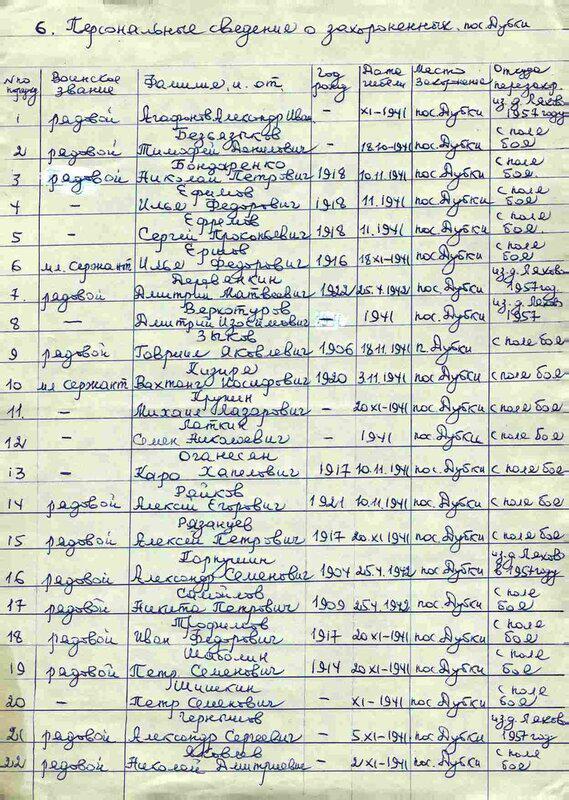 6. Персональные сведение о захороненных. пос. Дубки
№ по поряд Воинское звание Фамилие, и. от. Год рожд Дата гибели Место Захоронение Откуда перезахор.
1 рядовой Агафонов Александр Иван. – XI-1941 пос. Дубки из д. Ляхово 1957 году
Безъязыков с поле
2 рядовой Тимофей Данилович – 18.10-1941 пос. Дубки боя
Бондаренко с поле
3 рядовой Николай Петрович 1918 10.11.1941 пос. Дубки боя.
Ефимов с поле
4 – Илье Федорович 1918 11.1941 пос. Дубки боя
Ефремов с поле
5 – Сергей Прокопьевич 1918 11.1941 пос. Дубки боя
Ершов с поле
6 мл. сержант Илье Федорович 1916 18-XI-1941 пос. Дубки боя
Деревянкин из д. Ляхово
7. рядовой Дмитрий Матвеевич 1922 25.4.1942 пос. Дубки 1957 год
Веркотуров из д. Ляхово
8 – Дмитрий Изосимович – 1941 пос. Дубки 1957
Зыков
9 рядовой Гавриил Яковлевич 1906 18.11.1941 п. Дубки с поле боя
Кизиря
10 мл сержант Вахтанг Иосифович 1920 3.11.1941 пос. Дубки с поле боя
Крупин
11. – Михаил Лазарович – 20-XI-1941 пос. Дубки с поле боя
Латкин
12 – Семен Николаевич – 1941 пос. Дубки с поле боя
Оганесян
13 – Каро Хапелович 1917 10.11.1941 пос. Дубки с поле боя
Райков
14 рядовой Алексей Егорович 1921 10.11.1941 пос. Дубки с поле боя
Рязанцев
15 рядовой Алексей Петрович 1917 20.XI.1941 пос. Дубки с поле боя
Паршин из д. Ляхово
16 рядовой Александр Семенович 1904 25.4.1942 пос Дубки в 1957 году
Самойлов с поле
17 рядовой Никита Петрович 1909 25.4.1942 пос. Дубки боя
Трофимов с поле
18 рядовой Иван Федорович 1917 20-XI-1941 пос. Дубки боя
Шаболин с поле
19 рядовой Петр Семенович 1914 20 XI-1941 пос. Дубки боя
Шишекин с поле
20 – Петр Семенович – XI-1941 пос. Дубки боя
Чернышов из д. Ляхово
21 рядовой Александр Сергеевич – 5.XI-1941 пос. Дубки 1957 год
Яковлев с поле
22 рядовой Николай Дмитриевич – 2 XI-1941 пос. Дубки боя